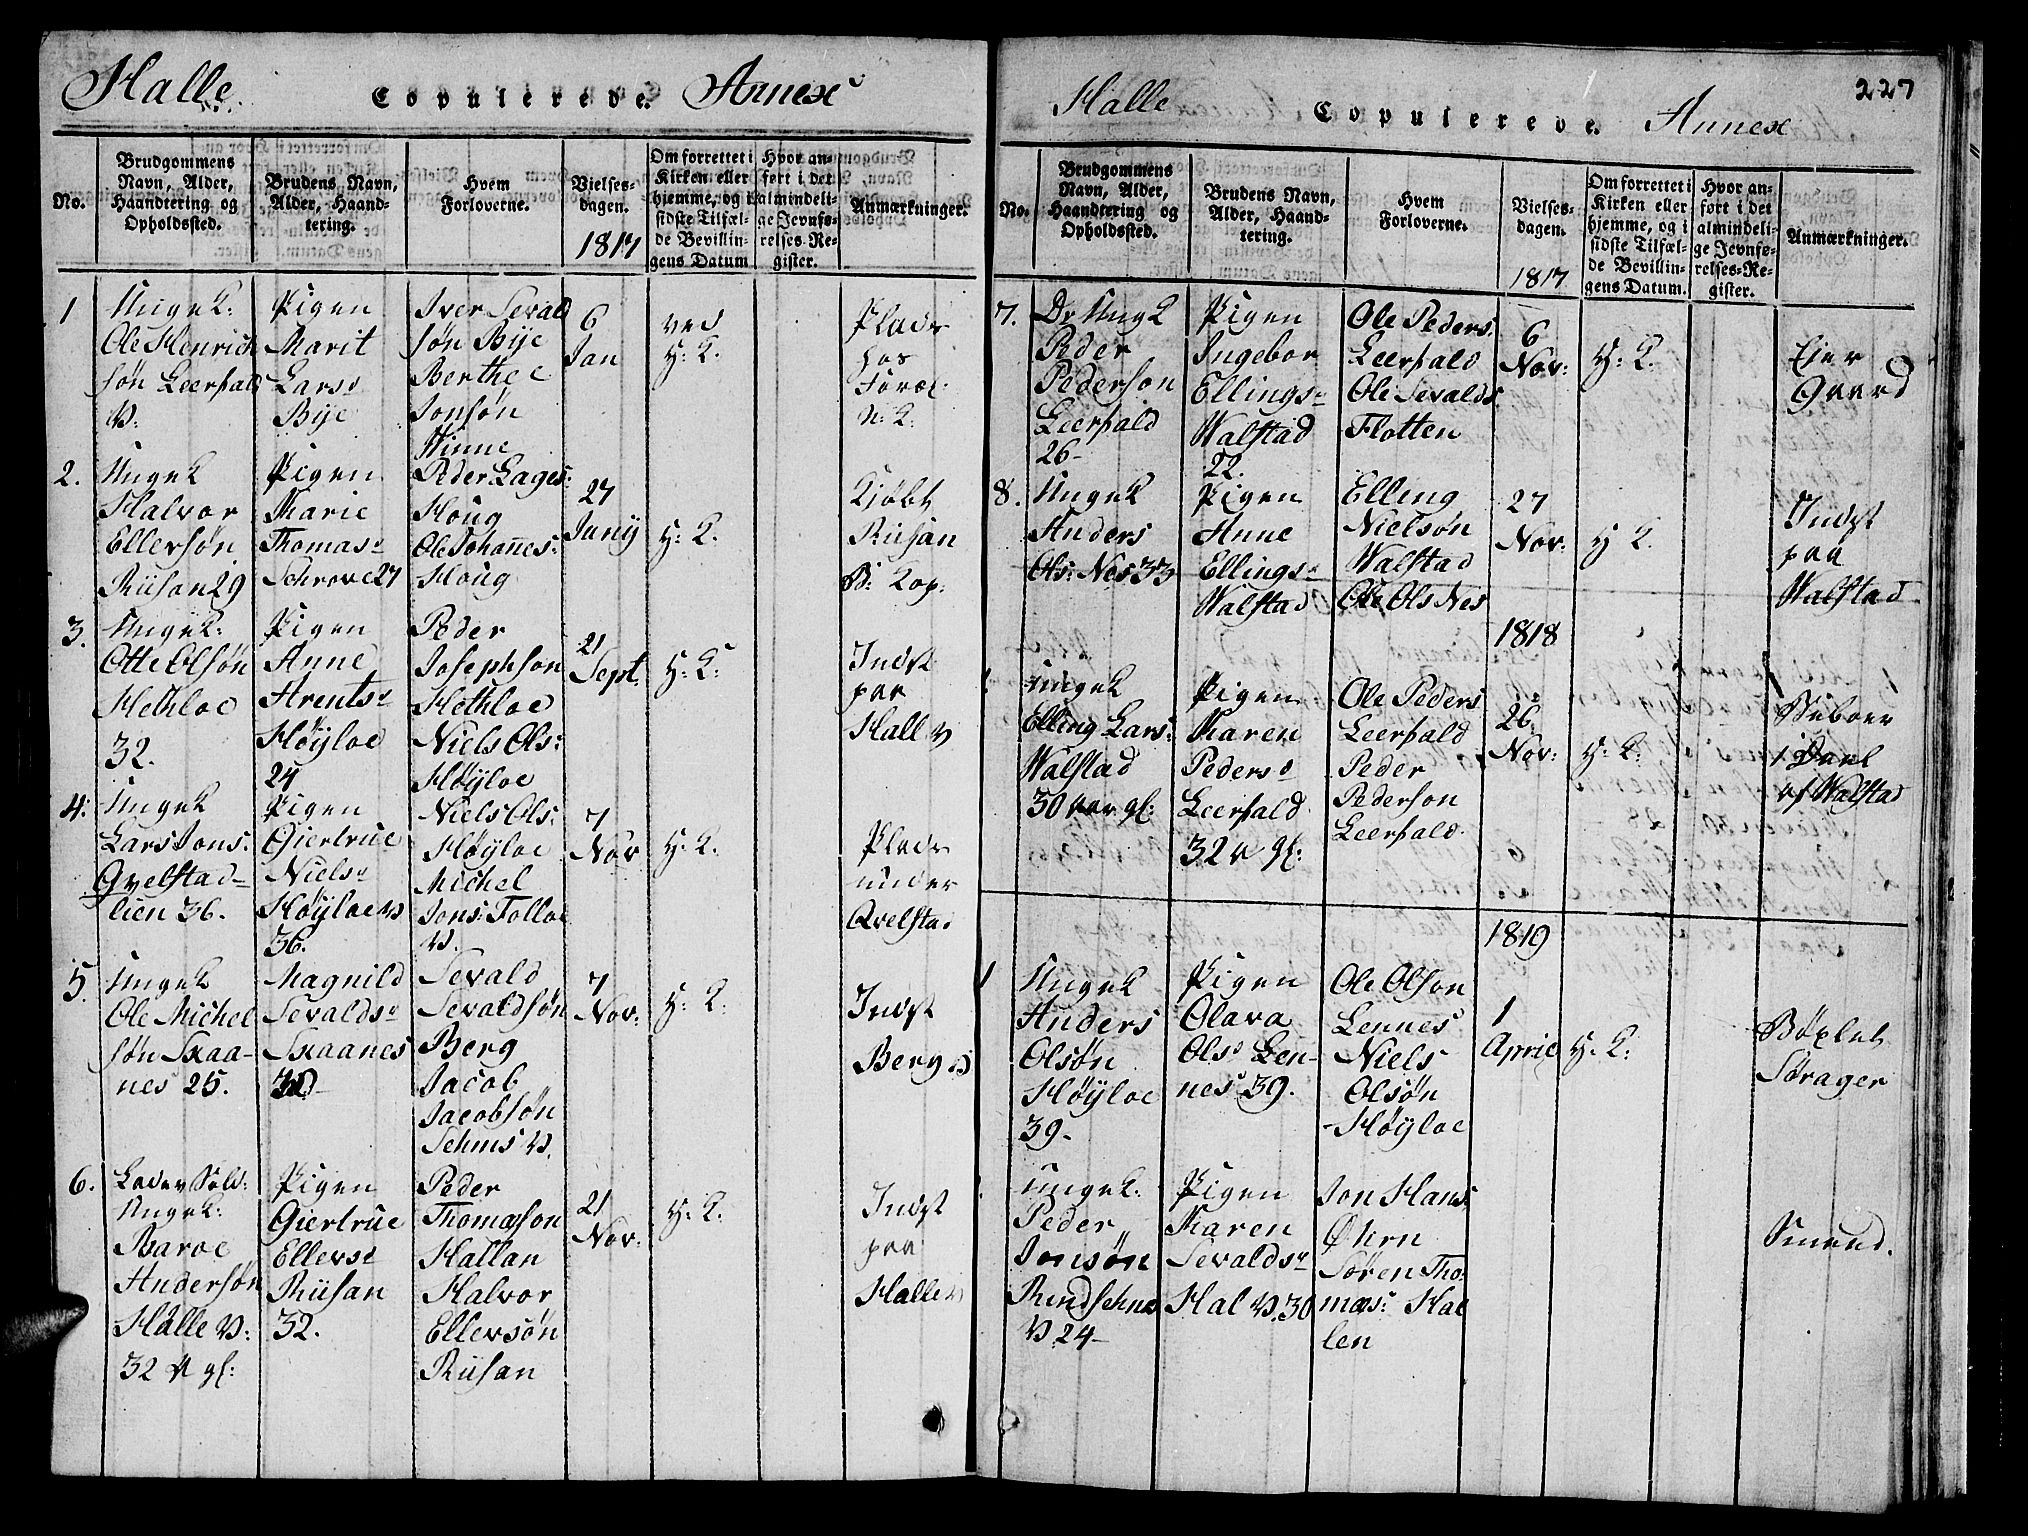 Halle Copulerede. Annex
No.
Brudgommens
Navn, Alder,
Haandtering og
Opholdssted.
Brudens Navn,
Alder, Haand-
tering.
Hvem
Forloverne.
Vielses-
dagen.
1817
Om forrettet i
Kirken eller
hjemme, og i
sidste Tilfæl-
de Bevillin-
gens Datum
Hvor an-
ført i det
almindeli-
ge Jevnfø-
relses-Re-
gister.
Anmærkninger.
1
Ungk:
Ole Henrich
søn Leerfald
V:
Pigen
Marit
Lars
Bÿe
Iver Sevald
søn Bÿe
Berthee
Jonsøn
Winne
6
Jan
ved
H: K.
Plads
hos
2.
Ungk
Halvor
Ellersøn
Riisan 29
Pigen
Marie
Thomas
Schrove 27
Peder
Houg
Ole Johannes:
Houg
27
Junÿ
H: K.
Kiøbt
Riisan
3.
Ungk:
Otte Olsøn
Hethloe
32.
Pigen
Anne
Arents
Høÿloe
24
Peder
Josephson
Hethloe
Niels Ols:
Høÿloe
21
Sept:
H: K:
Indst
paa
Hall V
4:
Ungk
Lars Jons:
Qvelstad-
lien 36.
Pigen
Giertrue
Niels
Høÿloe V
36.
Niels Ols:
Høÿloe
Michel
Jons: Folloe
V.
7
Nov
H: K.
Plads
under
Qvelstad
5.
Ungk
Ole Michel
søn Skaa-
nes 25.
Magnild
Sevalds
Skaanes
Sevald
Sevaldsøn
Berg
Jacob
Jacobsøn
Sehms V.
7
Nov:
H: K.
Indst
Berg
6.
Ungk:
Baroe
Andersøn
Halle V:
32 A gl:
Pigen
Giertrue
Ellers
Riisan
32.
Peder
Thomæson
Hallan
Halvor
Ellersøn
Riisan
21
Nov:
H: K.
Indst
paa
Halle V
Halle Copulerede. Annex
227
No.
Brudgommens
Navn, Alder,
Haandtering og
Opholdssted.
Brudens Navn,
Alder, Haand-
tering.
Hvem
Forloverne.
Vielses-
dagen.
1817
Om forrettet i
Kirken eller
hjemme, og i
sidste Tilfæl-
de Bevillin-
gens Datum.
Hvor an-
ført i det
almindeli-
ge Jevnfø-
relses-Re-
gister.
Anmærkninger.
7.
Ungk
Peder
Pederson
Leerfald
26-
Pigen
Ingebor
Ellings
Walstad
22.
Ole Peders:
Leerfald
Ole Sevalds
Flotten
6
Nov:
H: K.
Eier
Gaard
8.
Ungk
Anders
Ols: Nes 33
Pigen
Anne
Ellings
Walstad
Elling
Nielsøn
Walstad
Ole Ols Nes
27
Nov:
H K.
Indst
paa
Walstad
1818
1
Ungk
Elling Lars:
Walstad
30 aar gl:
Pigen
Karen
Peders
Leerfald
32 A gl:
Ole Peders
Leerfald
Peder
Pederson
Leerfald
26
Nov:
H: K:
af Walstad
1819
1
Ungk
Anders
Olsøn
Høÿloe
39-
Pigen
Olava
Ols Len-
nes 39.
Ole Olson
Lennes
Niels
Olsøn
Høÿloe
1
April
H: K:
Børlet
Sørager
Ungk:
Peder
Jonsøn
V. 24-
Pigen
Karen
Sevalds
Hal V. 30
Jon Hans
Øhrn
Søren Tho:
mæs: Hal
len